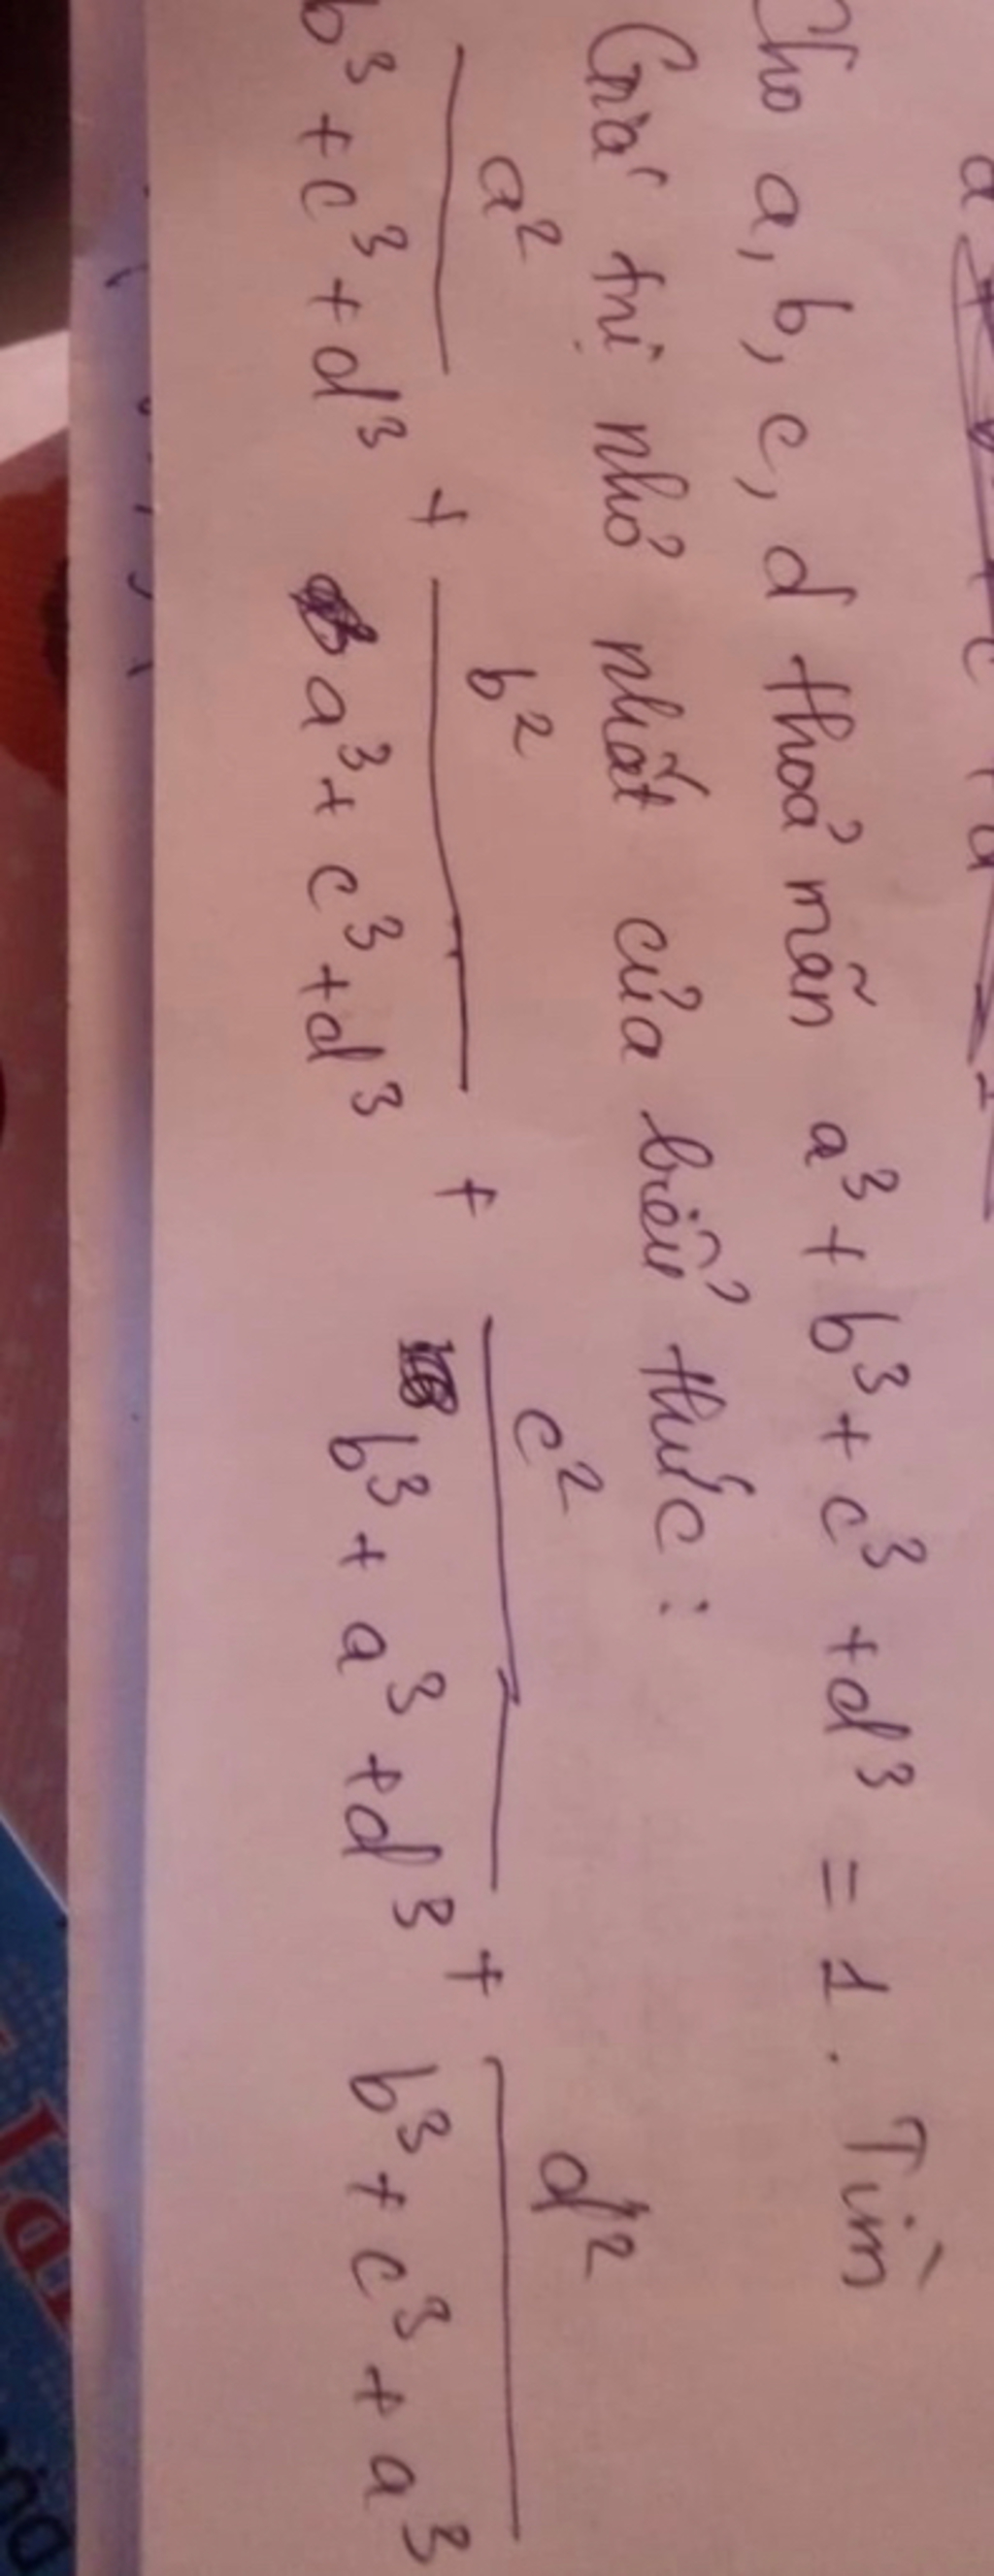 Cho a, b, c, d thoả mãn a³ + b³ + c³ + d³ = 1. Tìm
Giá trị nhỏ nhất của biểu thức :
a²/(b³ + c³ + d³) + b²/(a³ + c³ + d³) + c²/(b³ + a³ + d³) + d²/(b³ + c³ + a³)